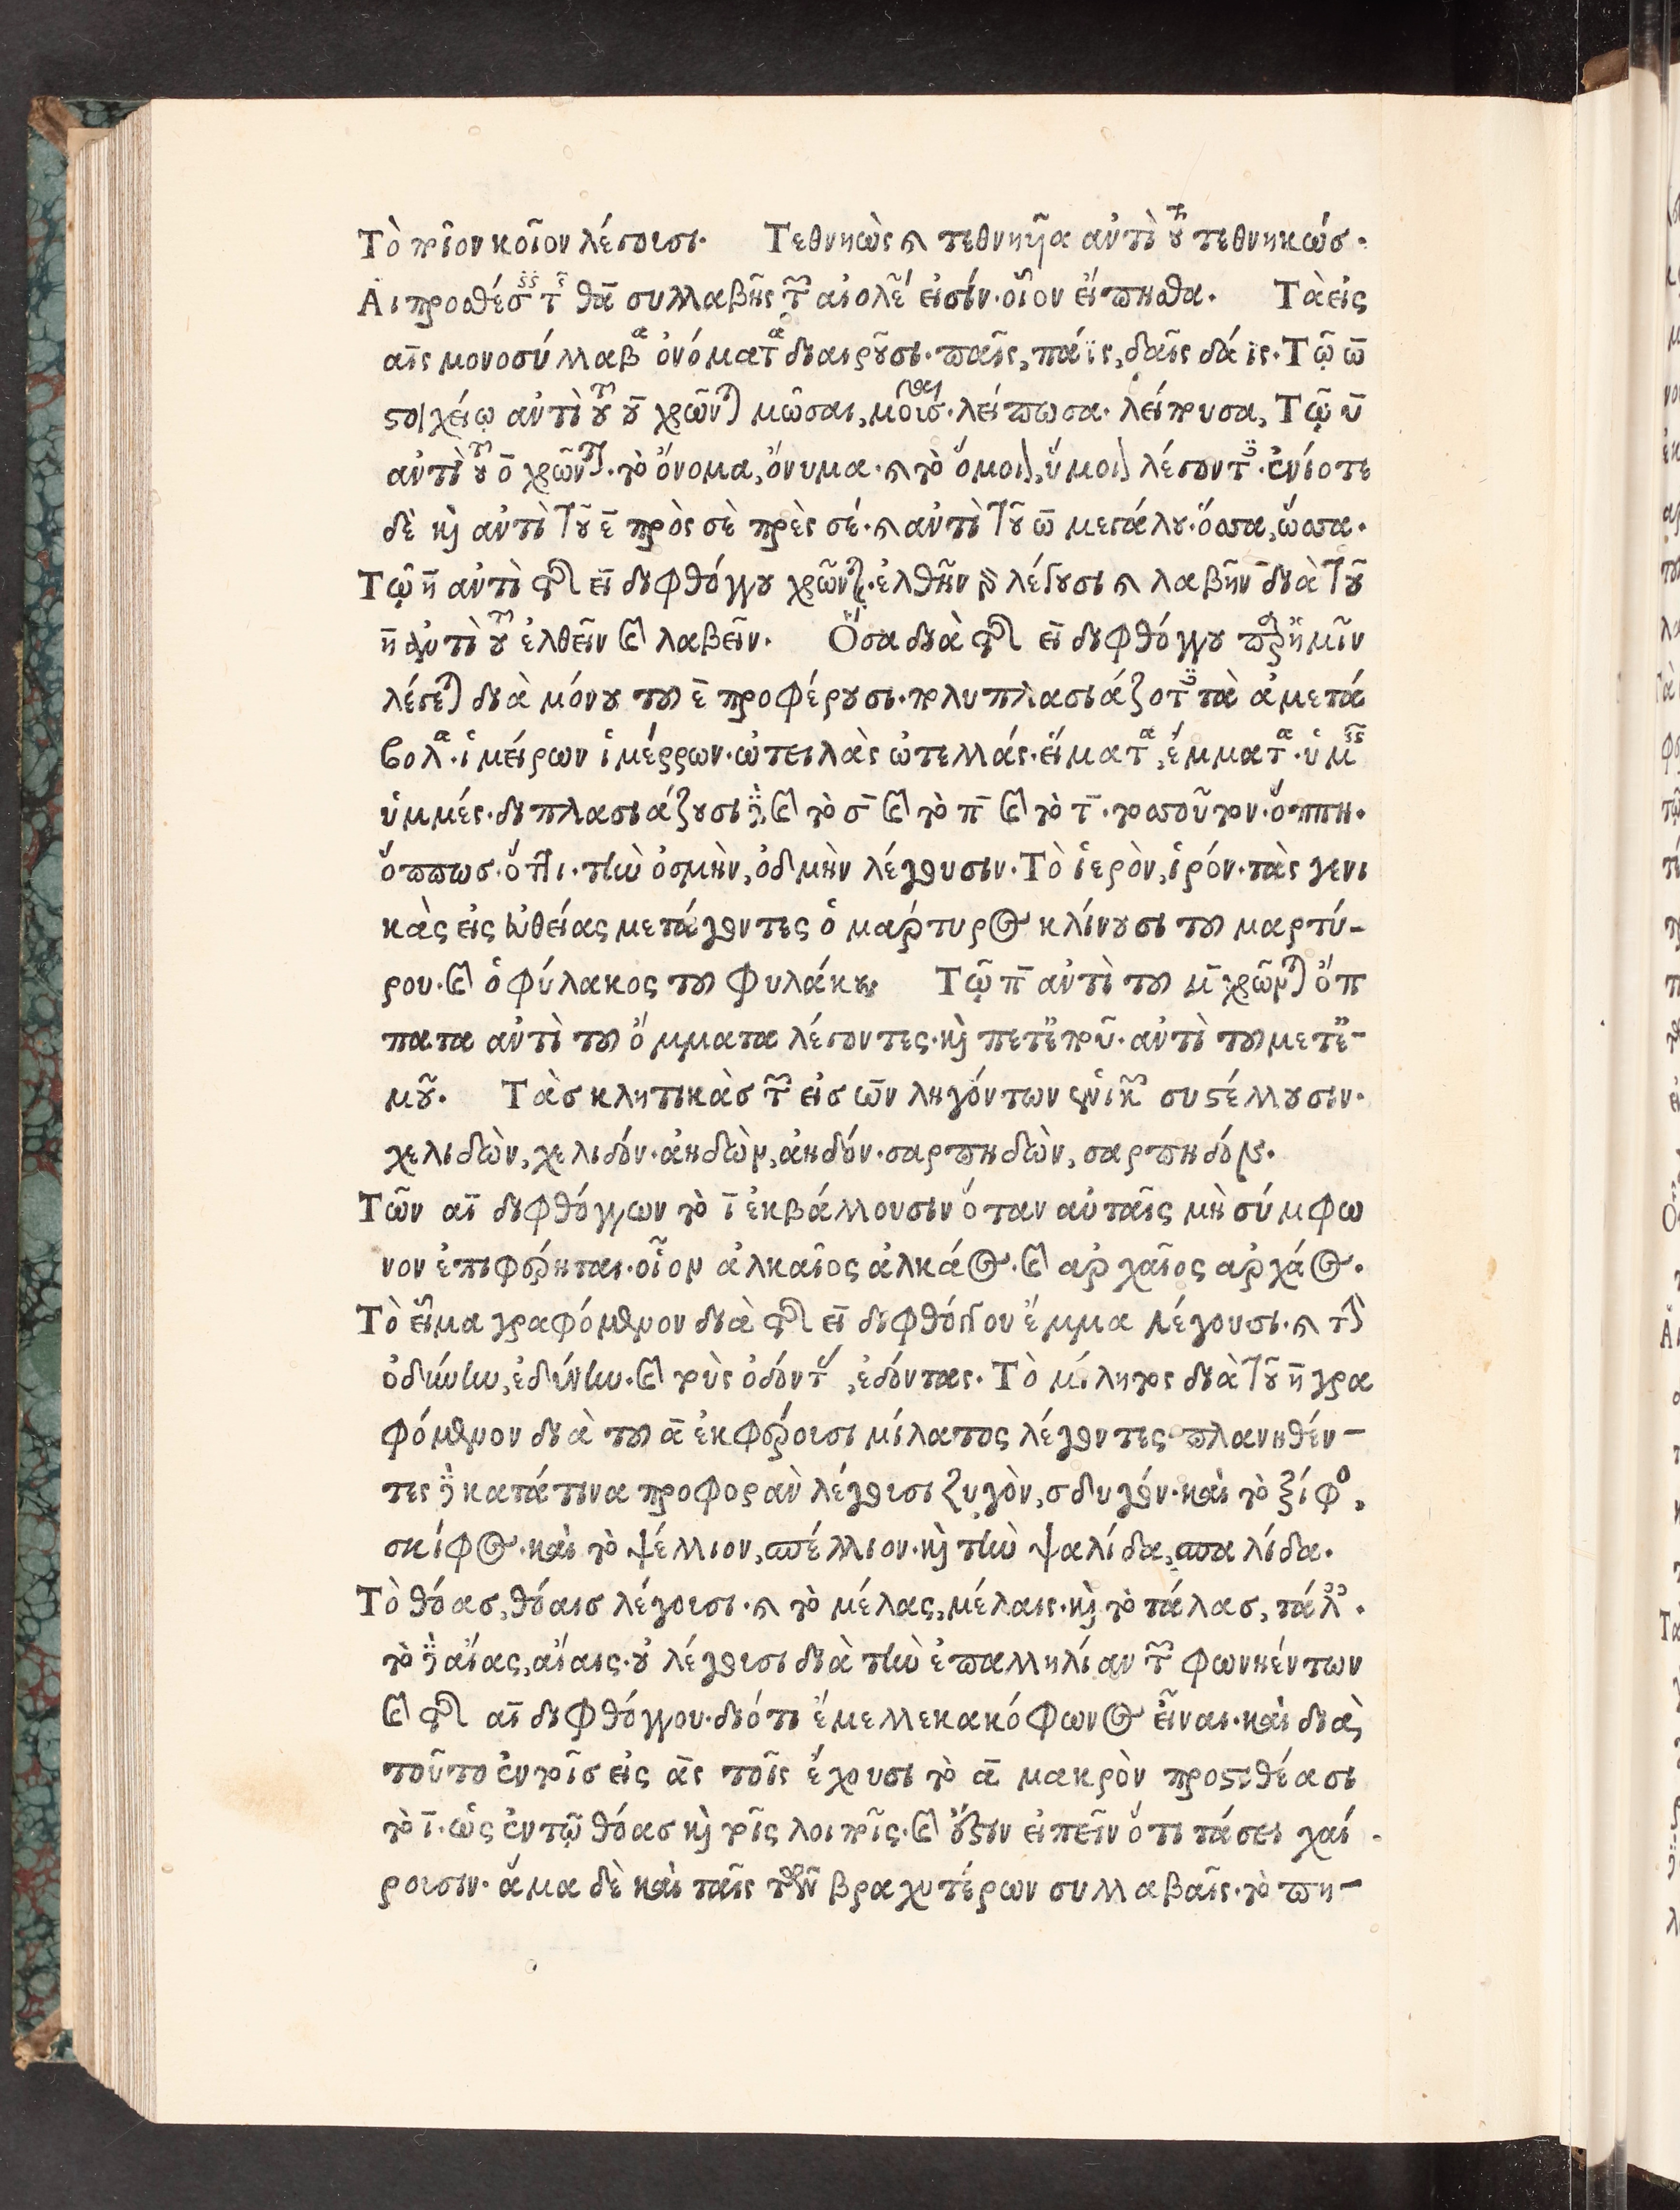 Τὸ ποῖον κοῖον λέγουσι. Τεθνηὼς καὶ τεθνηῶα αὐτὶ τοῦ τεθνηκώς.
Αι προσθέσεις τῆς θα συλλαβῆς τῶν αἰολέων εἰσίν. οἷον εἴπησθα. Τὰ εἰς
αις μονοσύλλαβα ὀνόματα διαιροῦσι. παῖς, πάϊς, δαῖς δάϊς. Τῷ ω
στοιχείῳ αὐτὶ τοῦ υ χρῶνται μῶσαι, μούσαις. λείπωσα. λείπουσα, Τῷ υ
αὐτὶ τοῦ ο χρῶνται. τὸ ὄνομα, ὄνυμα. καὶ τὸ ὅμοιον, ὕμοιον λέγοντες. ἐνίοτε
δὲ καὶ αὐτὶ τοῦ ε πρὸς σὲ πρὲς σέ. καὶ αὐτὶ τοῦ ω μεγάλου. ὅσσα, ὥσσα.
Τῷ η αὐτὶ τῆς ει διφθόγγου χρῶνται. ἐλθῆν γὰρ λέγουσι καὶ λαβῆν διὰ τοῦ
η αὐτὶ τοῦ ἐλθεῖν καὶ λαβεῖν. Ὅσα διὰ τῆς ει διφθόγγου παρ' ἡμῖν
λέγεται διὰ μόνου τοῦ ε προφέρουσι. πλυπλασιάζοντες τὰ ἀμετά
βολα. ἱμείρων ἱμέρρων. ὠτειλὰς ὠτελλάς. εἵματα, ἕμματα. ὑμεῖς
ὑμμές. διπλασιάζουσι δὲ καὶ τὸ σ καὶ τὸ π καὶ τὸ τ. τοσοῦτον. ὅππη.
ὅππως. ὅττι. τὴν ὀσμὴν, ὀδμὴν λέγουσιν. Τὸ ἱερὸν, ἱρόν. τὰς γενι
κὰς εἰς εὐθείας μετάγοντες ὁ μάρτυρος κλίνουσι τοῦ μαρτύ-
ρου. καὶ ὁ φύλακος τοῦ φυλάκου Τῷ π αὐτὶ τοῦ μ χρῶνται ὄπ
πατα αὐτὶ τοῦ ὄμματα λέγοντες. καὶ πετέπου. αὐτὶ τοῦ μετέ-
μου. Τὰς κλητικὰς τῶν εἰς ων ληγόντων συστέλλουσιν.
χελιδὼν, χελιδόν. ἀηδὼν, ἀηδόν. σαρπηδὼν, σαρπηδόν.
Τῶν αι διφθόγγων τὸ ι ἐκβάλλουσιν ὅταν αὐταῖς μὴ σύμφω
νον ἐπιφέρηται. οἷον ἀλκαῖος ἀλκάος. καὶ ἀρχαῖος ἀρχάος.
Τὸ εἷμα γραφόμενον διὰ τῆς ει διφθόγγου ἕμμα λέγουσι. καὶ τὴν
ὀδύνην, ἐδύνην. καὶ τοὺς ὀδόντας, ἐδόντας. Τὸ μίλητος διὰ τοῦ η γρα
φόμενον διὰ τοῦ α ἐκφέρουσι μίλατος λέγοντες πλανηθέν-
τες δὲ κατά τινα προφορὰν λέγουσι ζυγὸν, σδυγόν. καὶ τὸ ξίφος,
σκίφος. καὶ τὸ ψέλλιον, σπέλλιον. καὶ τὴν ψαλίδα, σπαλίδα.
Τὸ θόας, θόαις λέγουσι. καὶ τὸ μέλας, μέλαις. καὶ τὸ τάλας, τάλαις.
τὸ δὲ αἴας, αἴαις. οὐ λέγουσι διὰ τὴν ἐπαλληλίαν τῶν φωνηέντων
καὶ τῆς αι διφθόγγου. διότι ἔμελλε κακόφωνος εἶναι. καὶ διὰ
τοῦτο ἐν τοῖς εἰς ας τοῖς ἔχουσι τὸ α μακρὸν προστιθέασι
τὸ ι. ὡς ἐν τῷ θόας καὶ τοῖς λοιποῖς. καὶ ἔστιν εἰπεῖν ὅτι τάσει χαί
ρουσιν. ἅμα δὲ καὶ ταῖς τῶν βραχυτέρων συλλαβαῖς. τὸ πη-